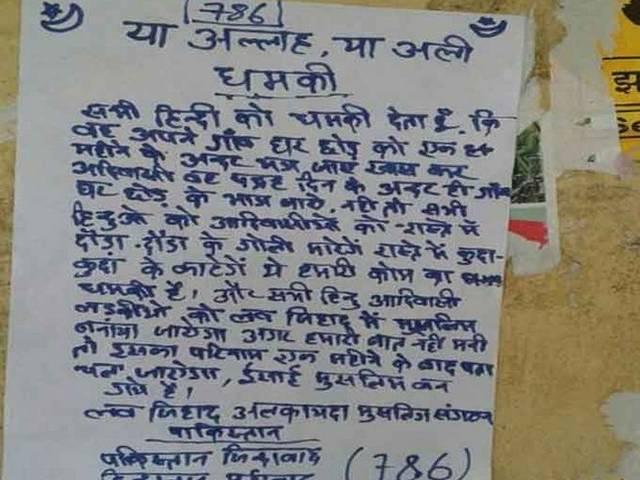 786
या अल्लाह, या अली
धमकी
सभी हिन्दी को धमकी देता हूँ. कि
वह अपने गाँव घर छोड़ को एक
महीने के अन्दर भाग जाए खास कर
आदिवासी वह पन्द्रह दिन के अन्दर ही गाँव
घर छोड़ के भाग जाये. नहीं तो सभी
हिन्दुओ को आदिवासीओ को रास्ते में
दौड़ा-दौड़ा के गोली मारेगें रास्ते में कुदा-
कुदा के काटेगें ये हमारी कौम का
धमकी है, और सभी हिन्दु आदिवासी
लड़कीओ को लव जिहाद में मुसलिम
बनाया जायेगा अगर हमारी बात नही मानी
तो इसका परिणाम एक महीने के बाद पता
चल जायेगा, ईसाई मुसलिम बन
गये है।
लव जिहाद अलकायदा मुसलिम संगठन
पाकिस्तान
पाकिस्तान जिन्दाबाद
(786)
झ